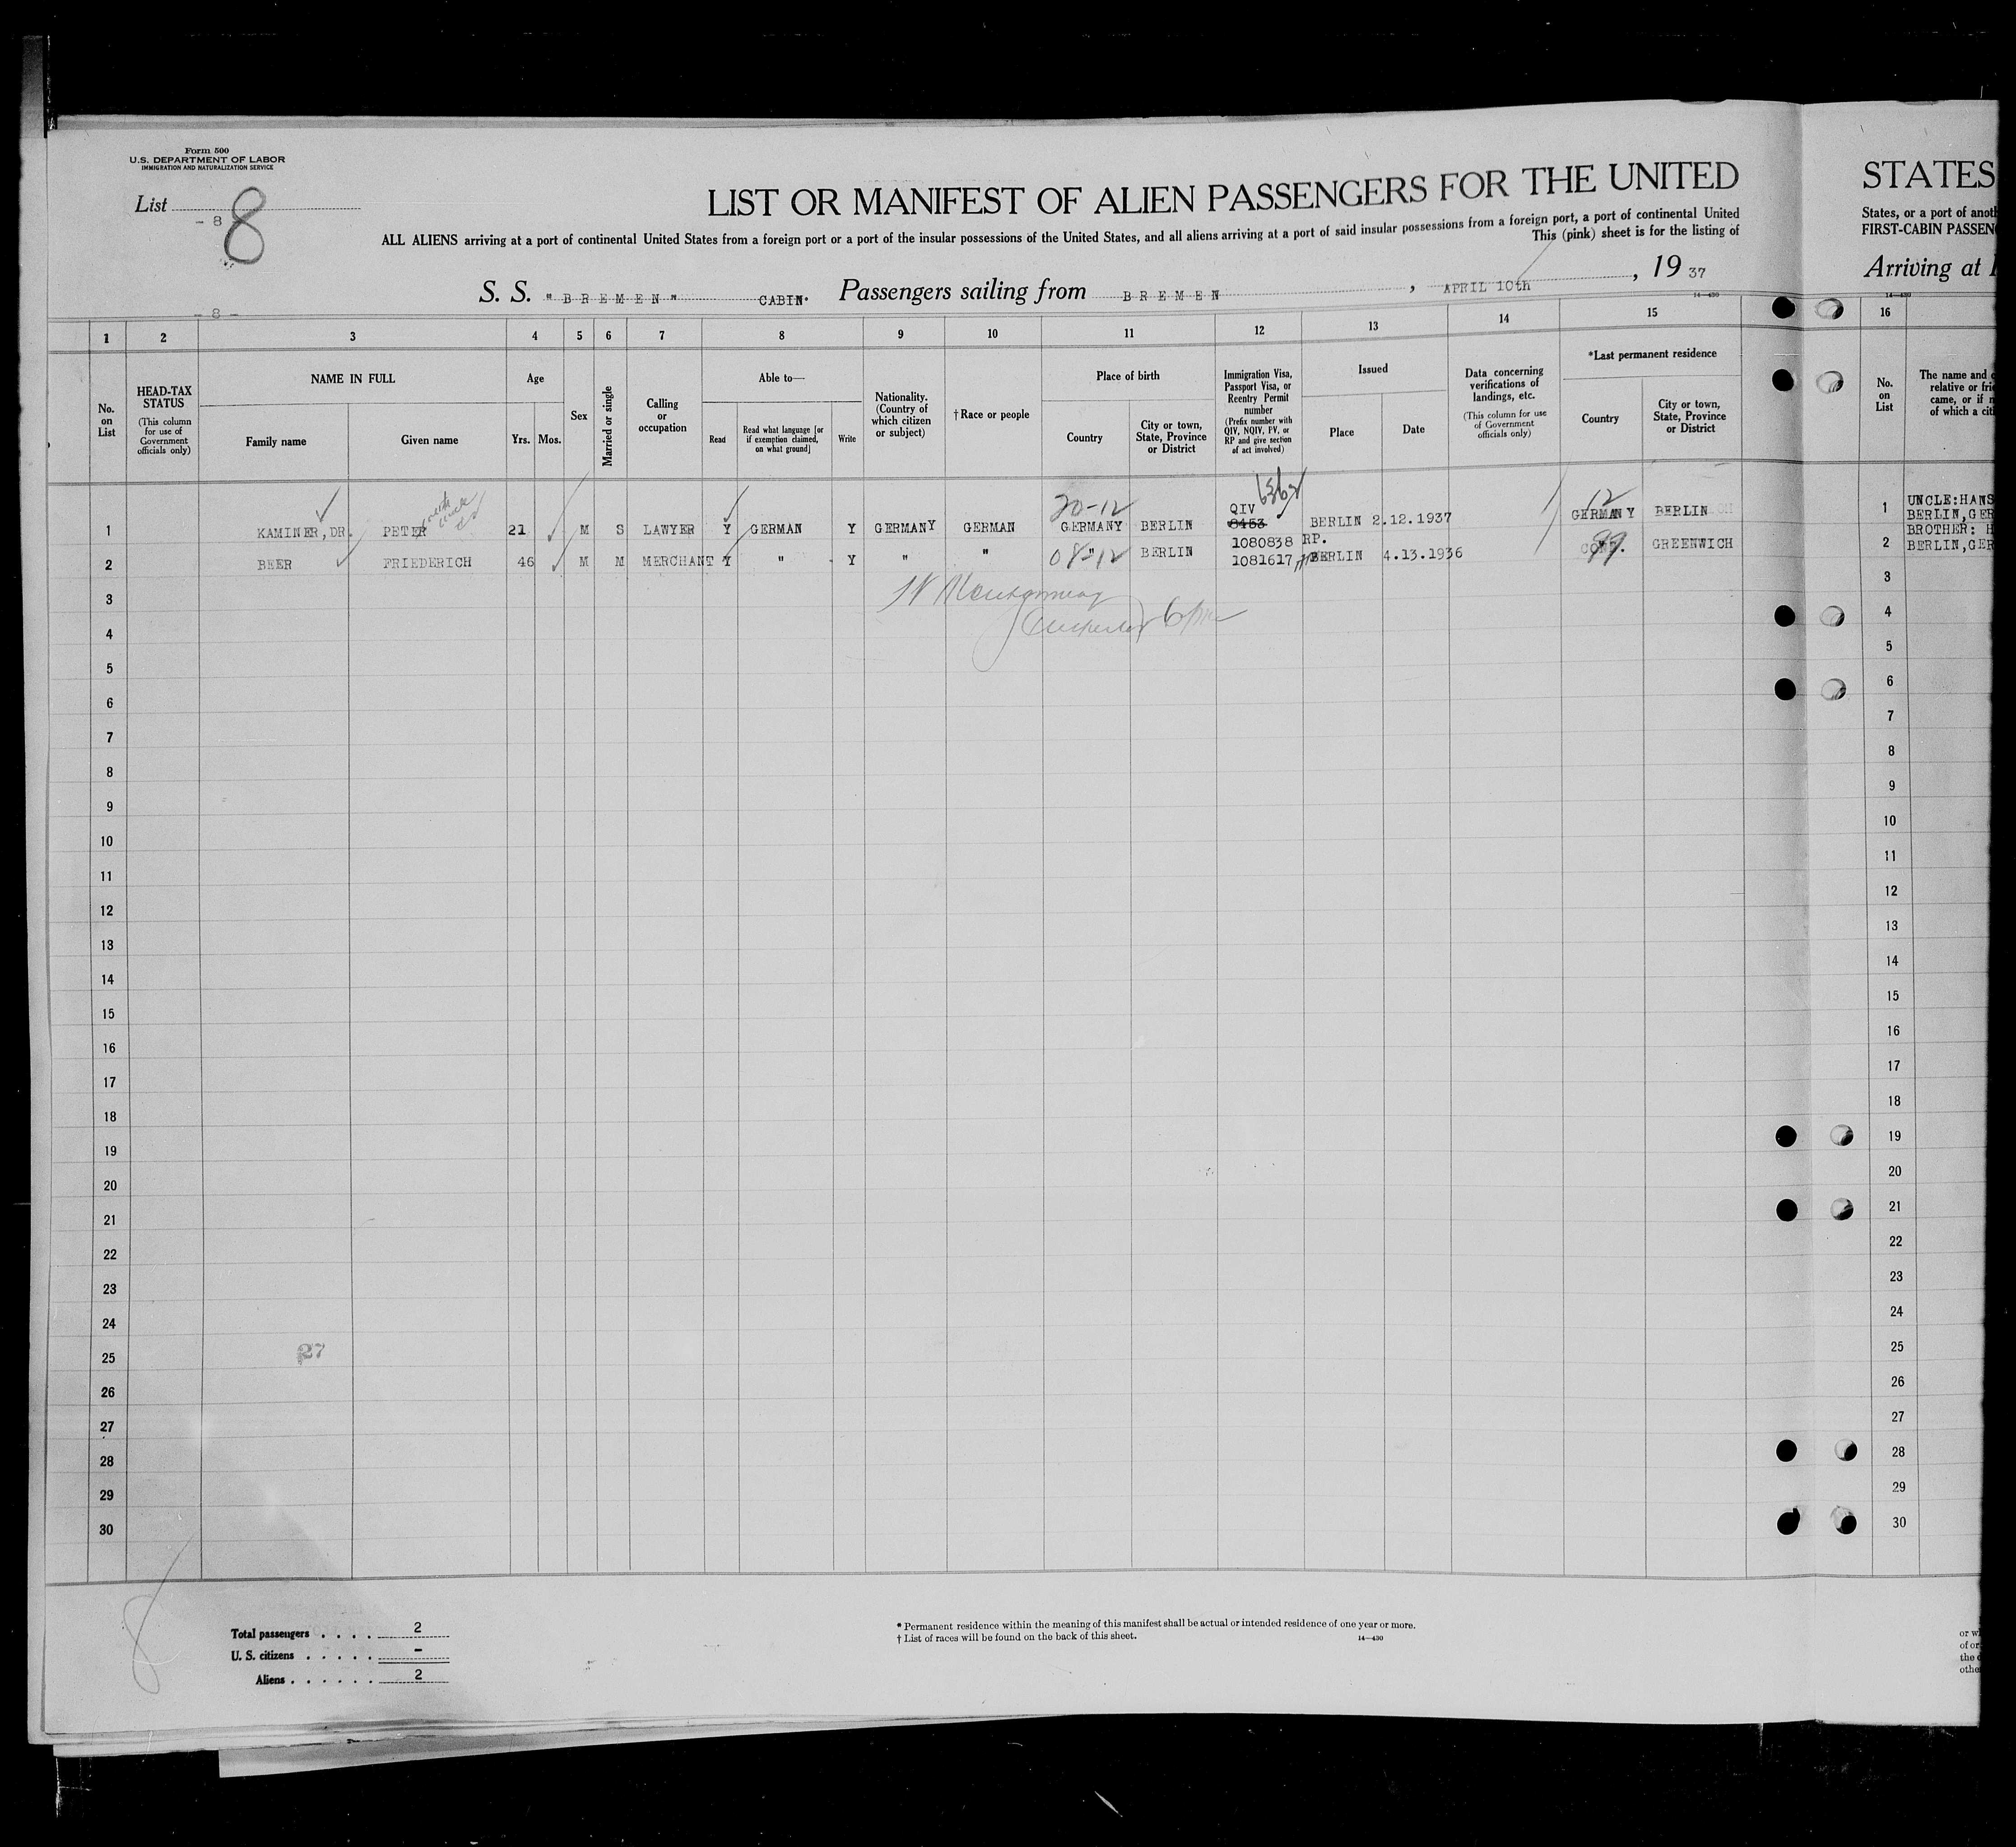 Form 500
U.S. DEPARTMENT OF LABOR
IMMIGRATION AND NATURALIZATION SERVICE
List
- 8 -
8
LIST OR MANIFEST OF ALIEN PASSENGERS FOR THE UNITED
ALL ALIENS arriving at a port of continental United States from a foreign port or a port of the insular possessions of the United States, and all aliens arriving at a port of said insular possessions from a foreign port, a port of continental United
This (pink) sheet is for the listing of
S. S. "BREMEN" CABIN. Passengers sailing from BREMEN, APRIL 10th, 19 37
14—430
- 8 -
1 2 3 4 5 6 7 8 9 10 11 12 13 14 15
No. on List
HEAD-TAX STATUS
(This column for use of Government officials only)
NAME IN FULL
Family name
Given name
Age
Yrs. Mos.
Sex
Married or single
Calling or occupation
Able to—
Read
Read what language [or if exemption claimed, on what ground]
Write
Nationality. (Country of which citizen or subject)
†Race or people
Place of birth
Country
City or town, State, Province or District
Immigration Visa, Passport Visa, or Reentry Permit number
(Prefix number with QIV, NQIV, PV, or RP and give section of act involved)
Issued
Place
Date
Data concerning verifications of landings, etc.
(This column for use of Government officials only)
*Last permanent residence
Country
City or town, State, Province or District
20-12
QIV
12
1 KAMINER, DR. PETER 21 M S LAWYER Y GERMAN Y GERMANY GERMAN GERMANY BERLIN 8453 BERLIN 2.12.1937 GERMANY BERLIN
1080838 RP.
2 BEER FRIEDERICH 46 M M MERCHANT Y " Y " " " 08-12 BERLIN 1081617 BERLIN 4.13.1936 CONN. 99 GREENWICH
3
4
5
6
7
8
9
10
11
12
13
14
15
16
17
18
19
20
21
22
23
24
25
27
26
27
28
29
30
8
Total passengers . . . . 2
U. S. citizens . . . . . -
Aliens . . . . . . 2
* Permanent residence within the meaning of this manifest shall be actual or intended residence of one year or more.
† List of races will be found on the back of this sheet.
14—430
STATES
States, or a port of anoth
FIRST-CABIN PASSEN
Arriving at
14—430
16
No. on List
The name and
relative or frie
came, or if n
of which a citi
1 UNCLE:HANS
BERLIN,GER
BROTHER: H
2 BERLIN,GER
3
4
5
6
7
8
9
10
11
12
13
14
15
16
17
18
19
20
21
22
23
24
25
26
27
28
29
30
or w
of or
the
othe